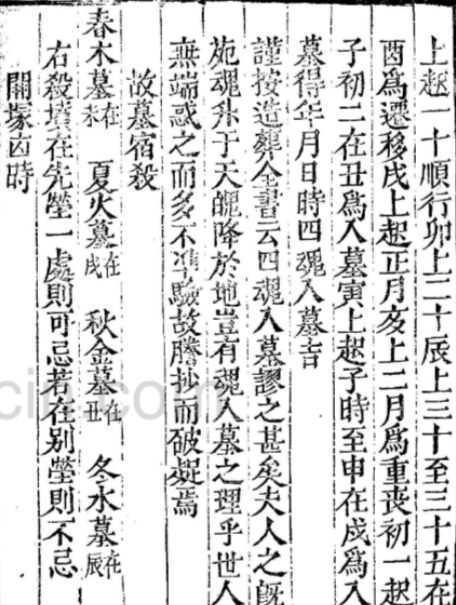 上起一十順行卯上二十辰上三十至三十五在
酉爲遷移戌上起正月亥上二月爲重丧初一起
子初二在丑爲入墓寅上起子時至申在戍爲入
墓得年月日時四魂入墓吉
謹按造葬全書云四魂入墓謬之甚矣夫人之既
死魂升于天魄降於地豈有魂入墓之理乎世人
無端惑之而多不準驗故謄抄而破疑焉
故墓宿殺
春木墓在未 夏火墓在戌 秋金墓在丑 冬水墓在辰
右殺墳在先塋一處則可忌若在别塋則不忌
開塚凶時